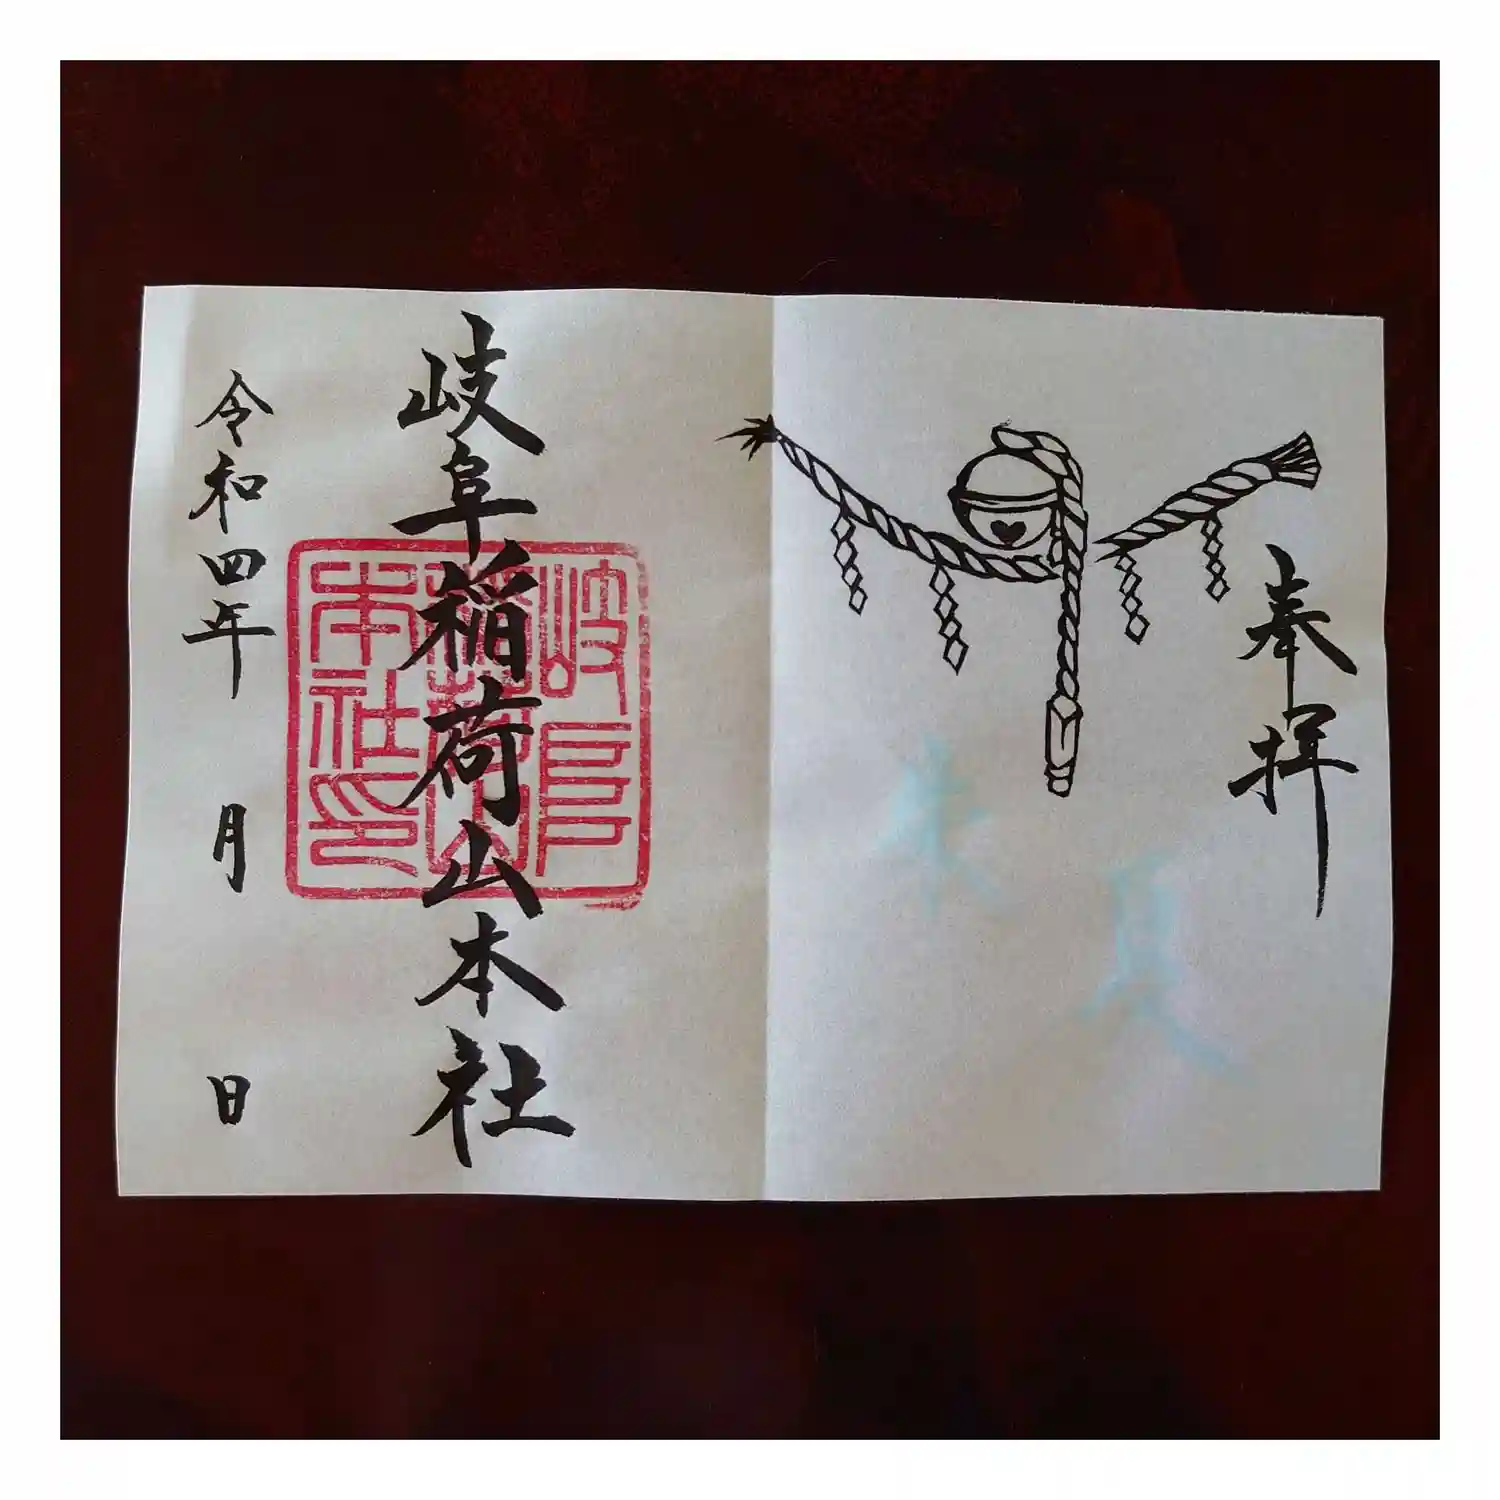 奉拝
夏
本
岐阜稲荷山本社
岐阜
稲荷山
本社印
令和四年 月 日